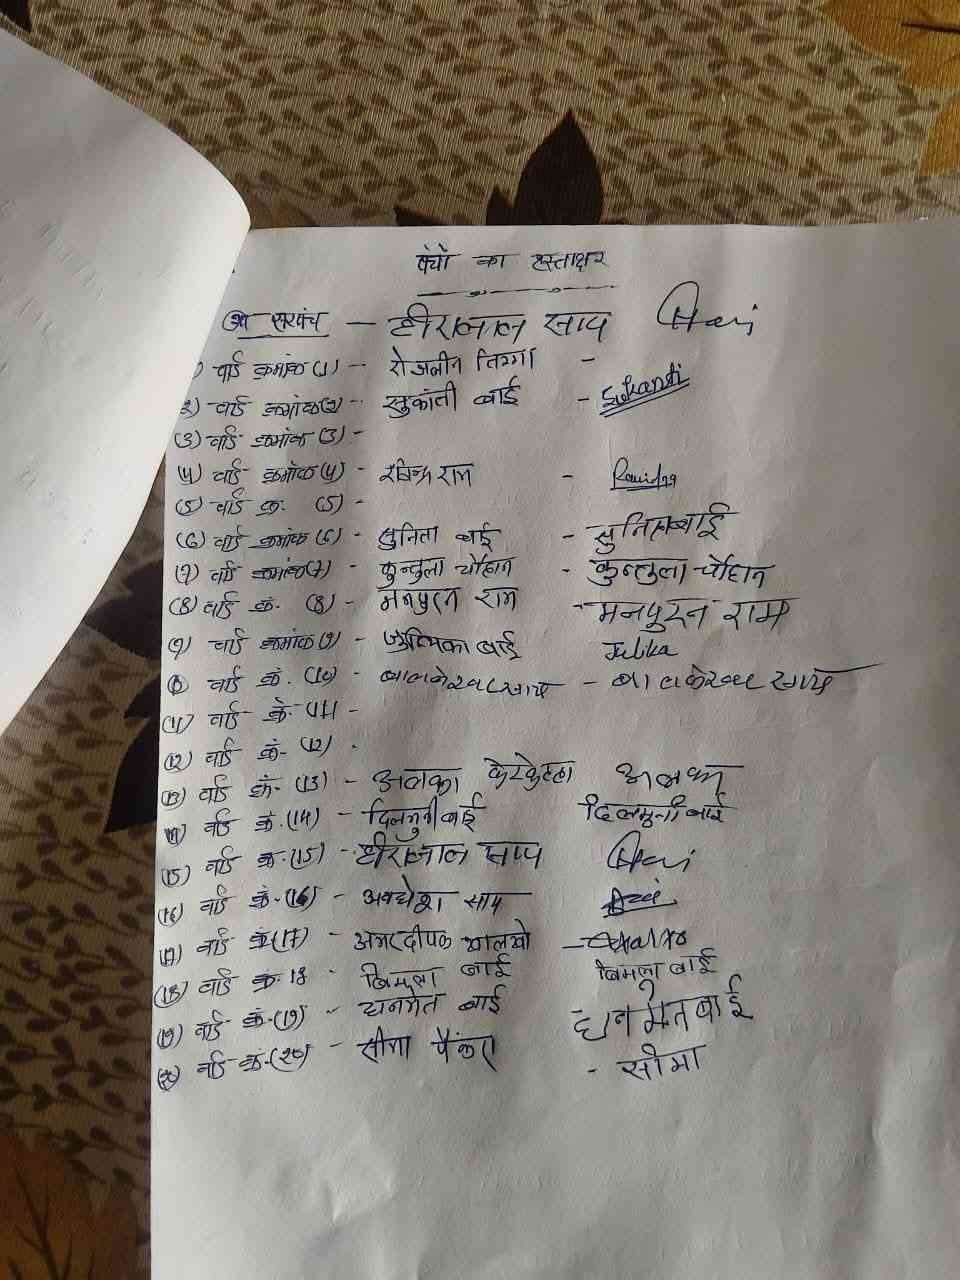 पंचों का हस्ताक्षर
उप सरपंच - हीरालाल साय Hari
) वार्ड क्रमांक (1) - रोजलीन तिग्गा -
2) वार्ड क्रमांक (2) - सुकांती बाई - Sukanti
(3) वार्ड क्रमांक (3) -
(4) वार्ड क्रमांक (4) - रविन्द्र राम -
(5) वार्ड क्र. (5) -
(6) वार्ड क्रमांक (6) - सुनिता बाई - सुनिता बाई
(7) वार्ड क्रमांक (7) - कुन्तुला चौहान - कुन्तुला चौहान
(8) वार्ड क्रं. (8) - मनपुरन राम - मनपुरन राम
9) वार्ड क्रमांक (9) - बाई Julika
वार्ड क्रं. (10) - बालकेश्वर साय - बालकेश्वर साय
(11) वार्ड क्रं. (11) -
(12) वार्ड क्रं. (12) .
(13) वार्ड क्रं. (13) - अलका केरकेट्टा अलका
वार्ड क्रं. (14) - दिलमुनी बाई दिलमुनी बाई
(15) वार्ड क्र. (15) - हीरालाल साय Hari
(16) वार्ड क्रं. (16) - अवधेश साय
(17) वार्ड क्रं (17) - अमरदीपक खालखो - xalxo
(18) वार्ड क्र. 18 - बिमला बाई बिमला बाई
(19) वार्ड क्रं. (19) - धनमेत बाई धनमेत बाई
(20) वार्ड क्रं. (20) - सीमा पैंकरा - सीमा